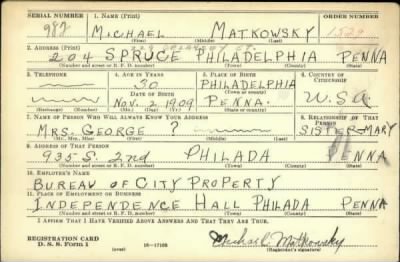 SERIAL NUMBER 1. NAME (Print) ORDER NUMBER
982 MICHAEL MATKOWSKY 1529
(First) (Middle) (Last)
2. ADDRESS (Print)
204 SPRUCE PHILADELPHIA PENNA
(Number and street or R. F. D. number) (Town) (County) (State)
3. TELEPHONE 4. AGE IN YEARS 5. PLACE OF BIRTH 6. COUNTRY OF CITIZENSHIP
30 PHILADELPHIA
DATE OF BIRTH (Town or county)
NOV. 2 1909 PENNA. U.S.A
(Exchange) (Number) (Mo.) (Day) (Yr.) (State or country)
7. NAME OF PERSON WHO WILL ALWAYS KNOW YOUR ADDRESS 8. RELATIONSHIP OF THAT PERSON
MRS. GEORGE ? SISTER-MARY
(Mr., Mrs., Miss) (First) (Middle) (Last)
9. ADDRESS OF THAT PERSON
935 S. 2nd PHILADA PENNA
(Number and street or R. F. D. number) (Town) (County) (State)
10. EMPLOYER'S NAME
BUREAU OF CITY PROPERTY
11. PLACE OF EMPLOYMENT OR BUSINESS
INDEPENDENCE HALL PHILADA PENNA
(Number and street or R. F. D. number) (Town) (County) (State)
I AFFIRM THAT I HAVE VERIFIED ABOVE ANSWERS AND THAT THEY ARE TRUE.
REGISTRATION CARD
D. S. S. Form 1 (over) 16-17105 Michael Matkowsky
(Registrant's signature)